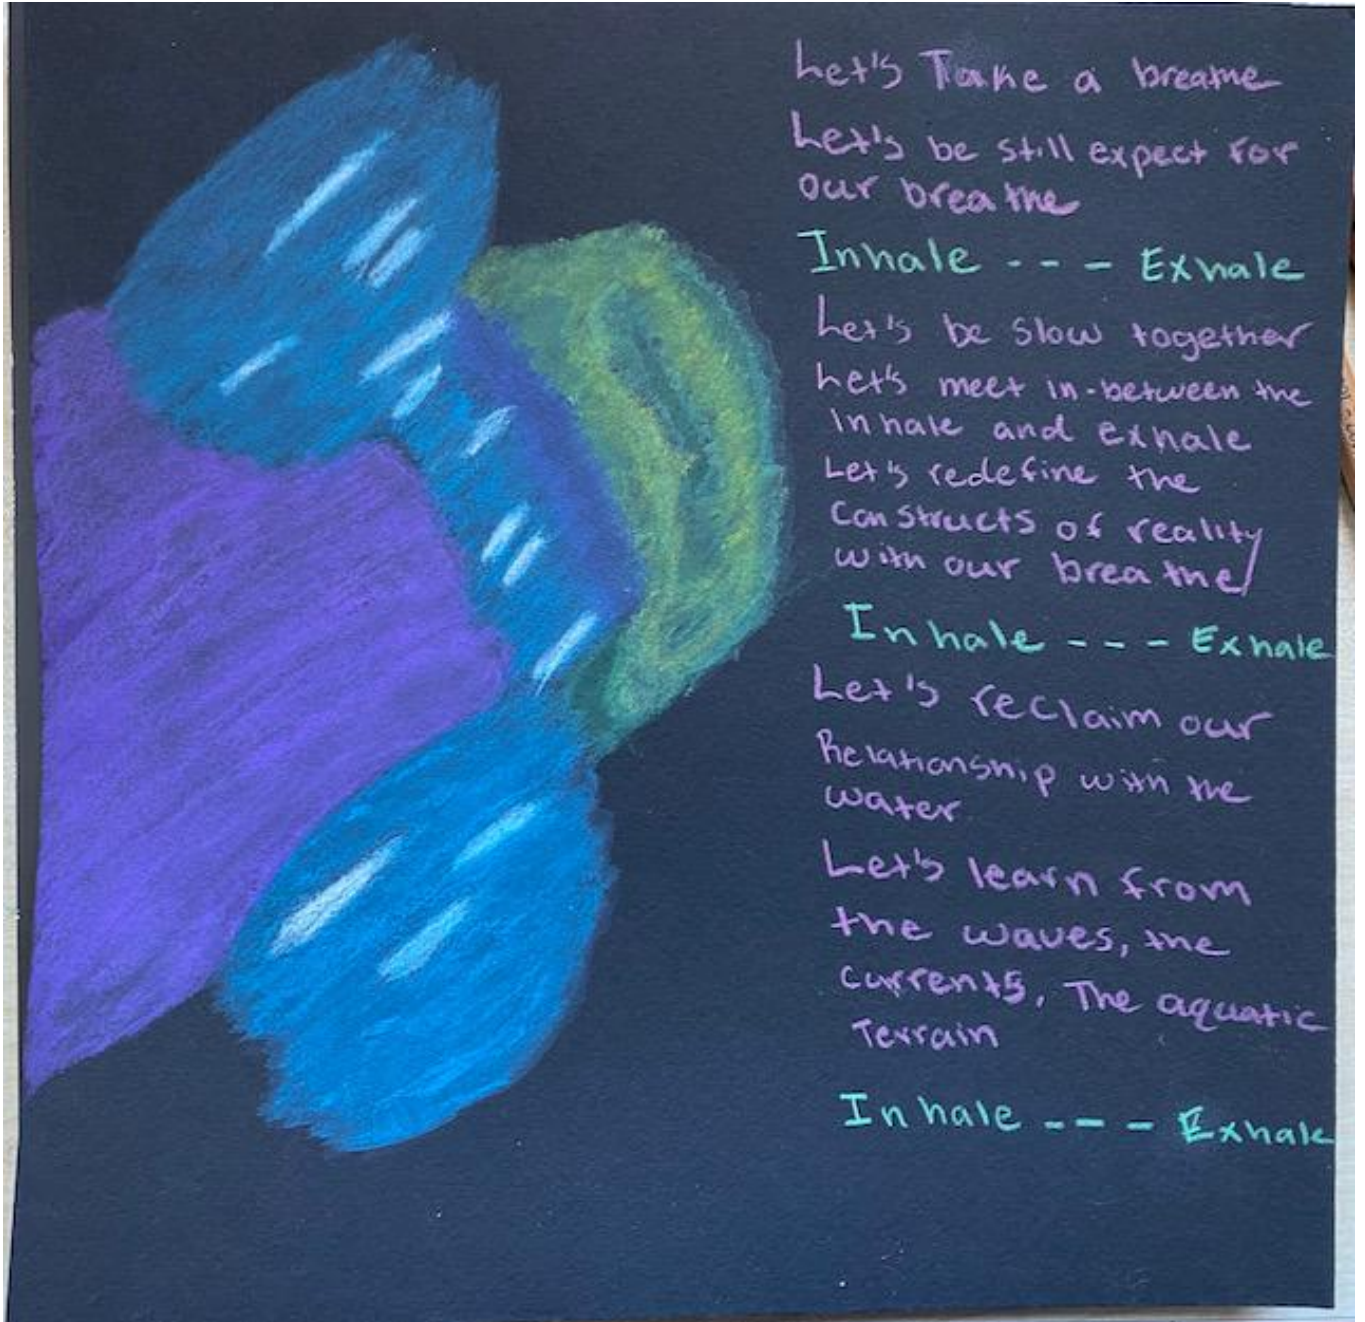 Let's Take a breathe
Let's be still expect for
our breathe
Inhale - - - Exhale
Let's be slow together
Let's meet in-between the
inhale and exhale
Let's redefine the
constructs of reality
with our breathe/
Inhale - - - Exhale
Let's reclaim our
Relationship with the
water
Let's learn from
the waves, the
currents, The aquatic
Terrain
Inhale - - - Exhale